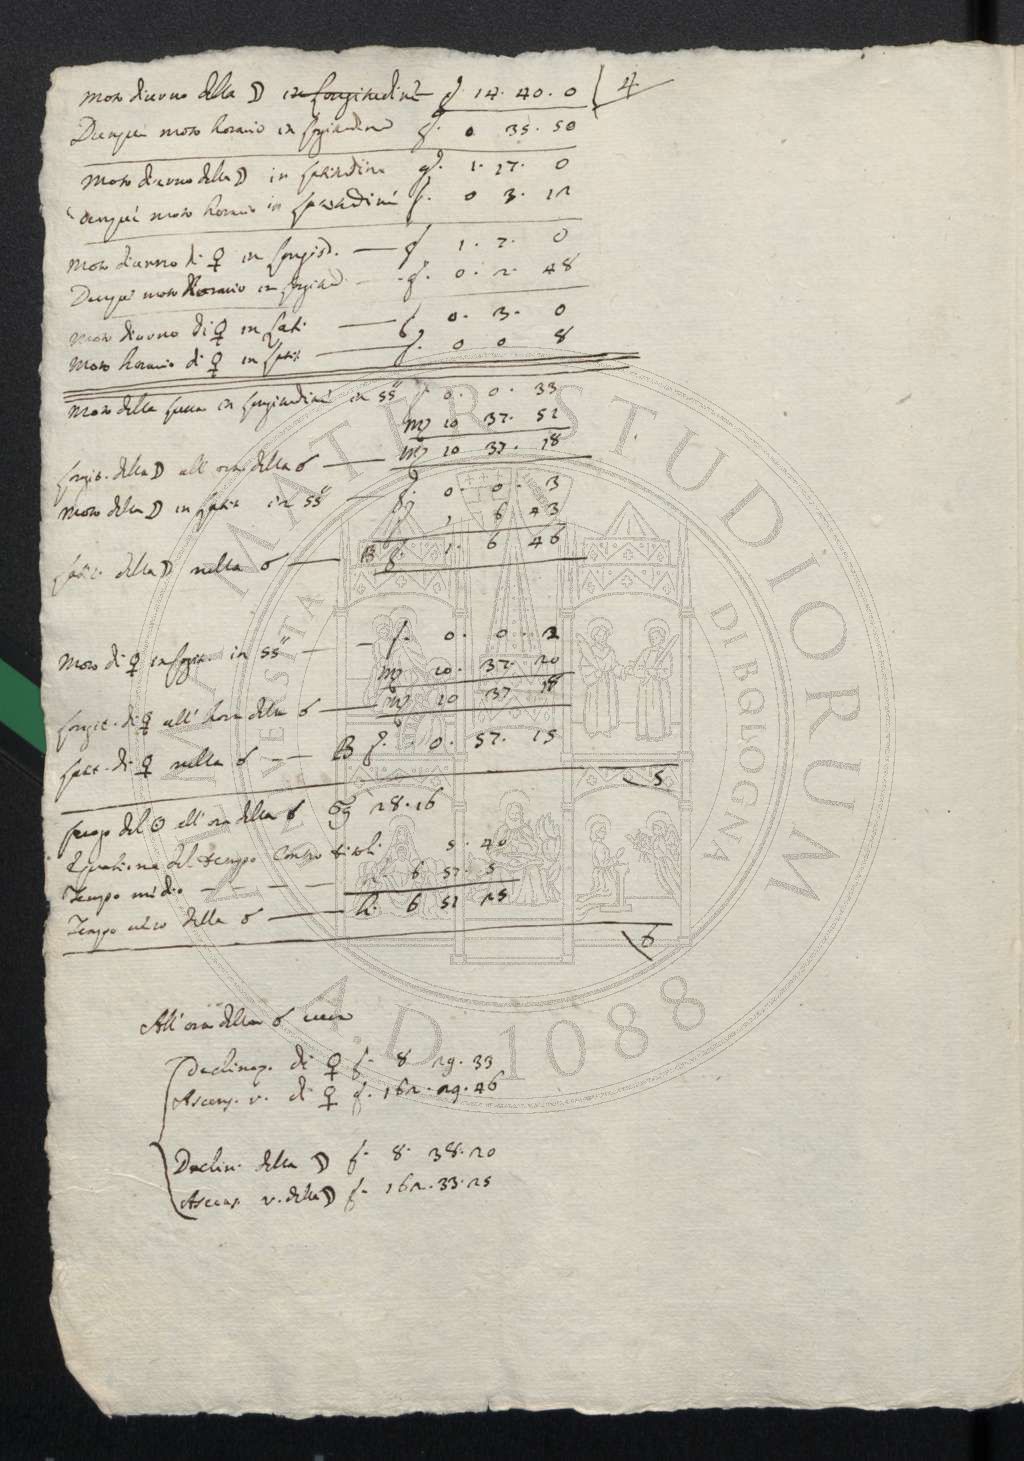 Moto diurno della ☽ in longitudine g. 14. 20. 0 4
Dunque moto horario in longitudine g. 0 35. 50
Moto diurno della ☽ in latitudine g. 1. 17. 0
dunque moto horario in latitudine g. 0 3. 12
Moto diurno di ♀ in longit. — g. 1. 7. 0
Dunque moto horario in longitud. — g. 0. 2. 48
Moto diurno di ♀ in lati. — g. 0. 3. 0
Moto horario di ♀ in latit. — g. 0 0 8
Moto della luna in longitudine in 55" g. 0. 0. 33
♍ 20 37. 51
longit. della ☽ all' ora della ☌ — ♍ 20 37. 18
Moto della ☽ in latit. in 55" — g. 0. 0. 3
g. 1 6 43
latit. della ☽ nella ☌ — B g. 1. 6 46
Moto di ♀ in longit. in 55" — g. 0. 0. 2
♍ 20. 37. 20
longit. di ♀ all' hora della ☌ — ♍ 20 37 18
latit. di ♀ nella ☌ — B g. 0. 57. 15
5
luogo del ☉ all' ora della ☌ 28. 16
Equatione del tempo contro titoli 5. 40
Tempo medio — — — h. 6 57. 5
Tempo vero della ☌ — h. 6 51 25
6
All' ora della ☌ vera
Declinaz. di ♀ g. 8 29. 33
Ascens. r. di ♀ g. 162. 29. 46
Declin. della ☽ g. 8. 38. 20
Ascens. r. della ☽ g. 162. 33. 25
ALMA MATER STUDIORUM
A.D. 1088
UNIVERSITÀ DI BOLOGNA